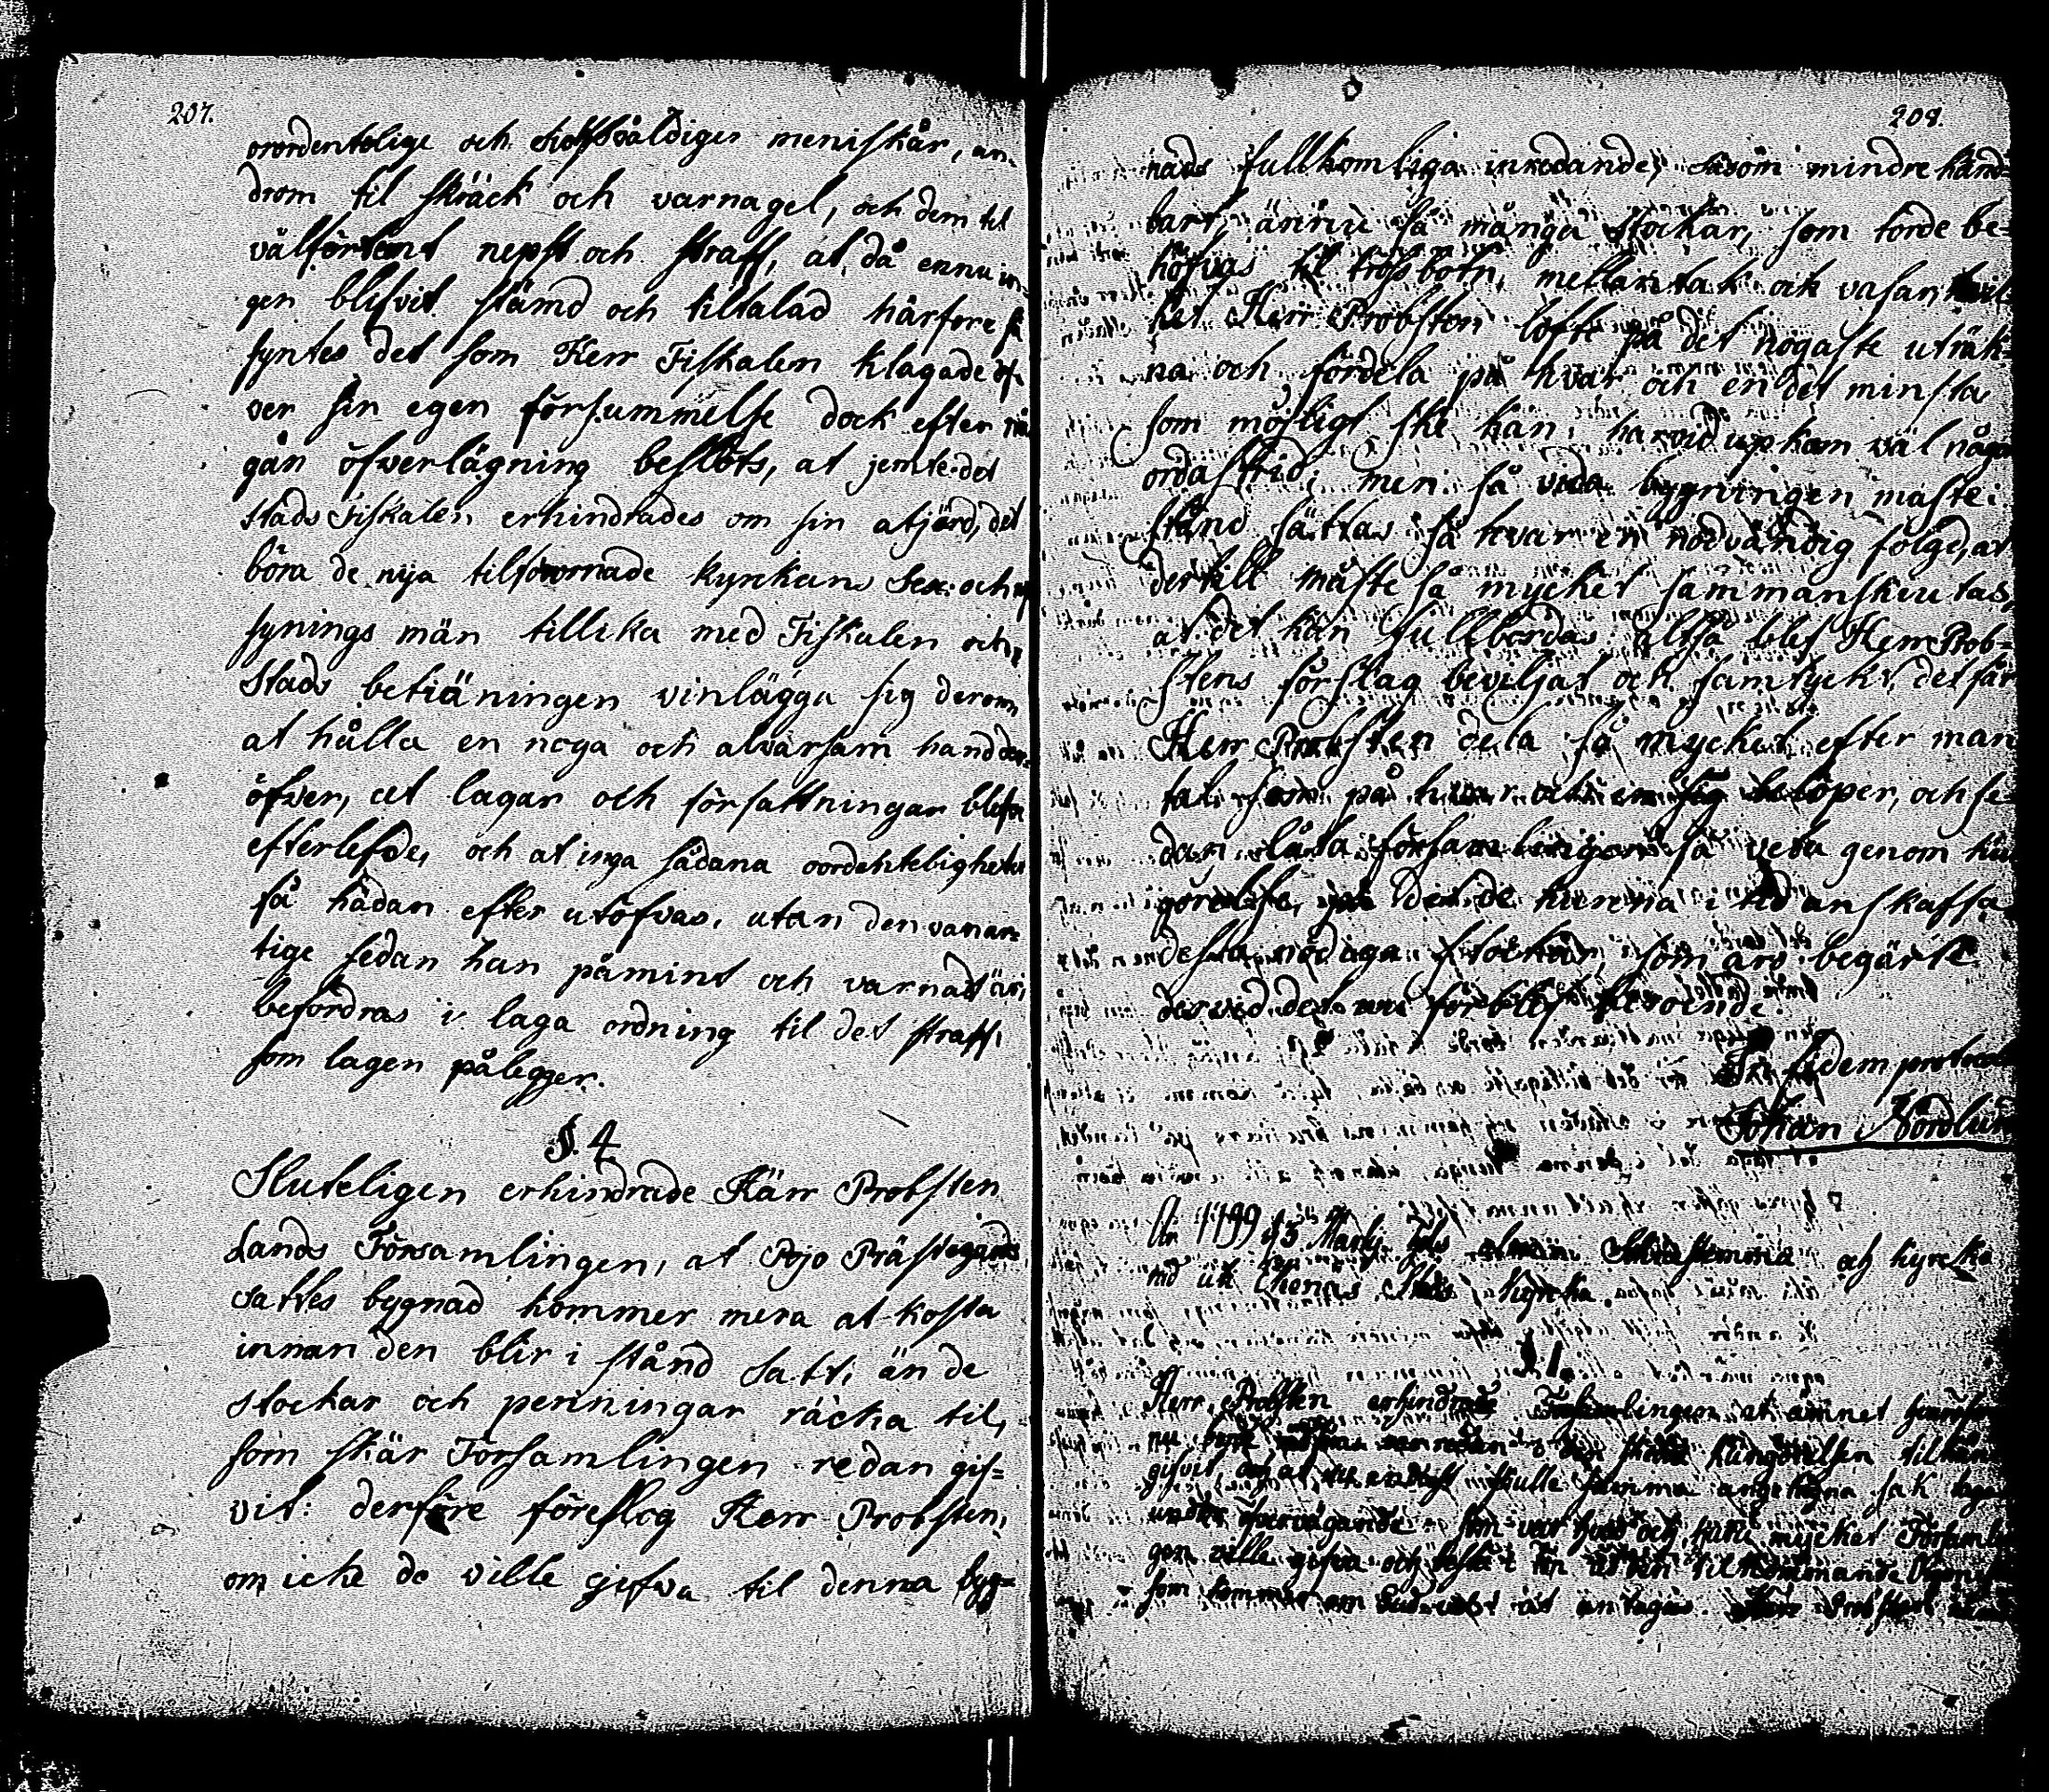 207.
oordentelige och sielfsvåldiger meniskår, an-
drom til skräck och varnagel, och dem til
välförtent nepst och straff, at då ennu in-
gen blifvit stämd och tiltalad härföre så
syntes det som Herr Fiskalen klagade öf-
ver sin egen försummelse dock efter nå-
gån öfverlägning beslöts, at jemte det
stads Fiskalen erhindrades om sin atjärd, det
böra de nya tilförornade kyrckans Sex- och up-
synings män tillika med Fiskalen och
Stads betiäningen vinlägga sig derom
at hålla en noga och alvarsam hand der-
öfver, at lagar och författningar blefve
efterlefde, och at inga sådana oordenteligheter
få hädan efter utöfvas, utan den vanar-
tige sedan han påmint och varnad är,
befordras i laga ordning til det straff,
som lagen pålegger.
§. 4
Sluteligen erhindrade Härr Probsten
Lands Församlingen, at Pojo Prästegårds
sattes bygnad kommer mera at kosta
innan den blir i stånd satt, än de
stockar och penningar räcka til,
som skär Församlingen redan gif-
vit: derföre föreslog Herr Probsten,
om icke de ville gifva til denna byg-
208.
nads fullkomliga inredande, såsom mindre känd-
bart, ännu så många stockar, som torde be-
höfvas til trossbotn, mellantak och vasan hvil-
ket Herr Probsten lofte på det nogaste uträk-
na och fördela på hvar och en det minsta
som möjligt ske kan, härvid upkom väl någon
ordastrid, men så vida bygningen måste i
stånd sättas så hvar en nödvändig fölgd, at
dertill måste så mycket sammanskiutas,
at det kan fullbordas altså blef Herr Prob-
stens förslag beviljat och samtyckt, det får
Herr Probsten dela så mycket efter man
tal som på hvar och en sig belöper, och se-
dan låta församlingen få veta genom kun-
görelse, på det de kunna i tid anskaffa
desse nödiga stockar, som äro begärte
dervid det nu förblef beroende.
In fidem protocolli
Johan Nordlund
År 1799 d 3 Martii höls almän Sockenstemma och kyrcko
råd uti Ekenäs Stads kyrcka.
§ 1.
Herr Probsten erhindrade Församlingen at ämnet hvarföre
nu kungörelsen tilkänna
gifvit, och at skulle samma angelägna sak tagas
under öfvervägande som var hvad och huru mycket Församlin-
gen ville gifva och bestå i lön åt den tilkommande
som kommer om Gud vill åt antagas. Herr Probsten